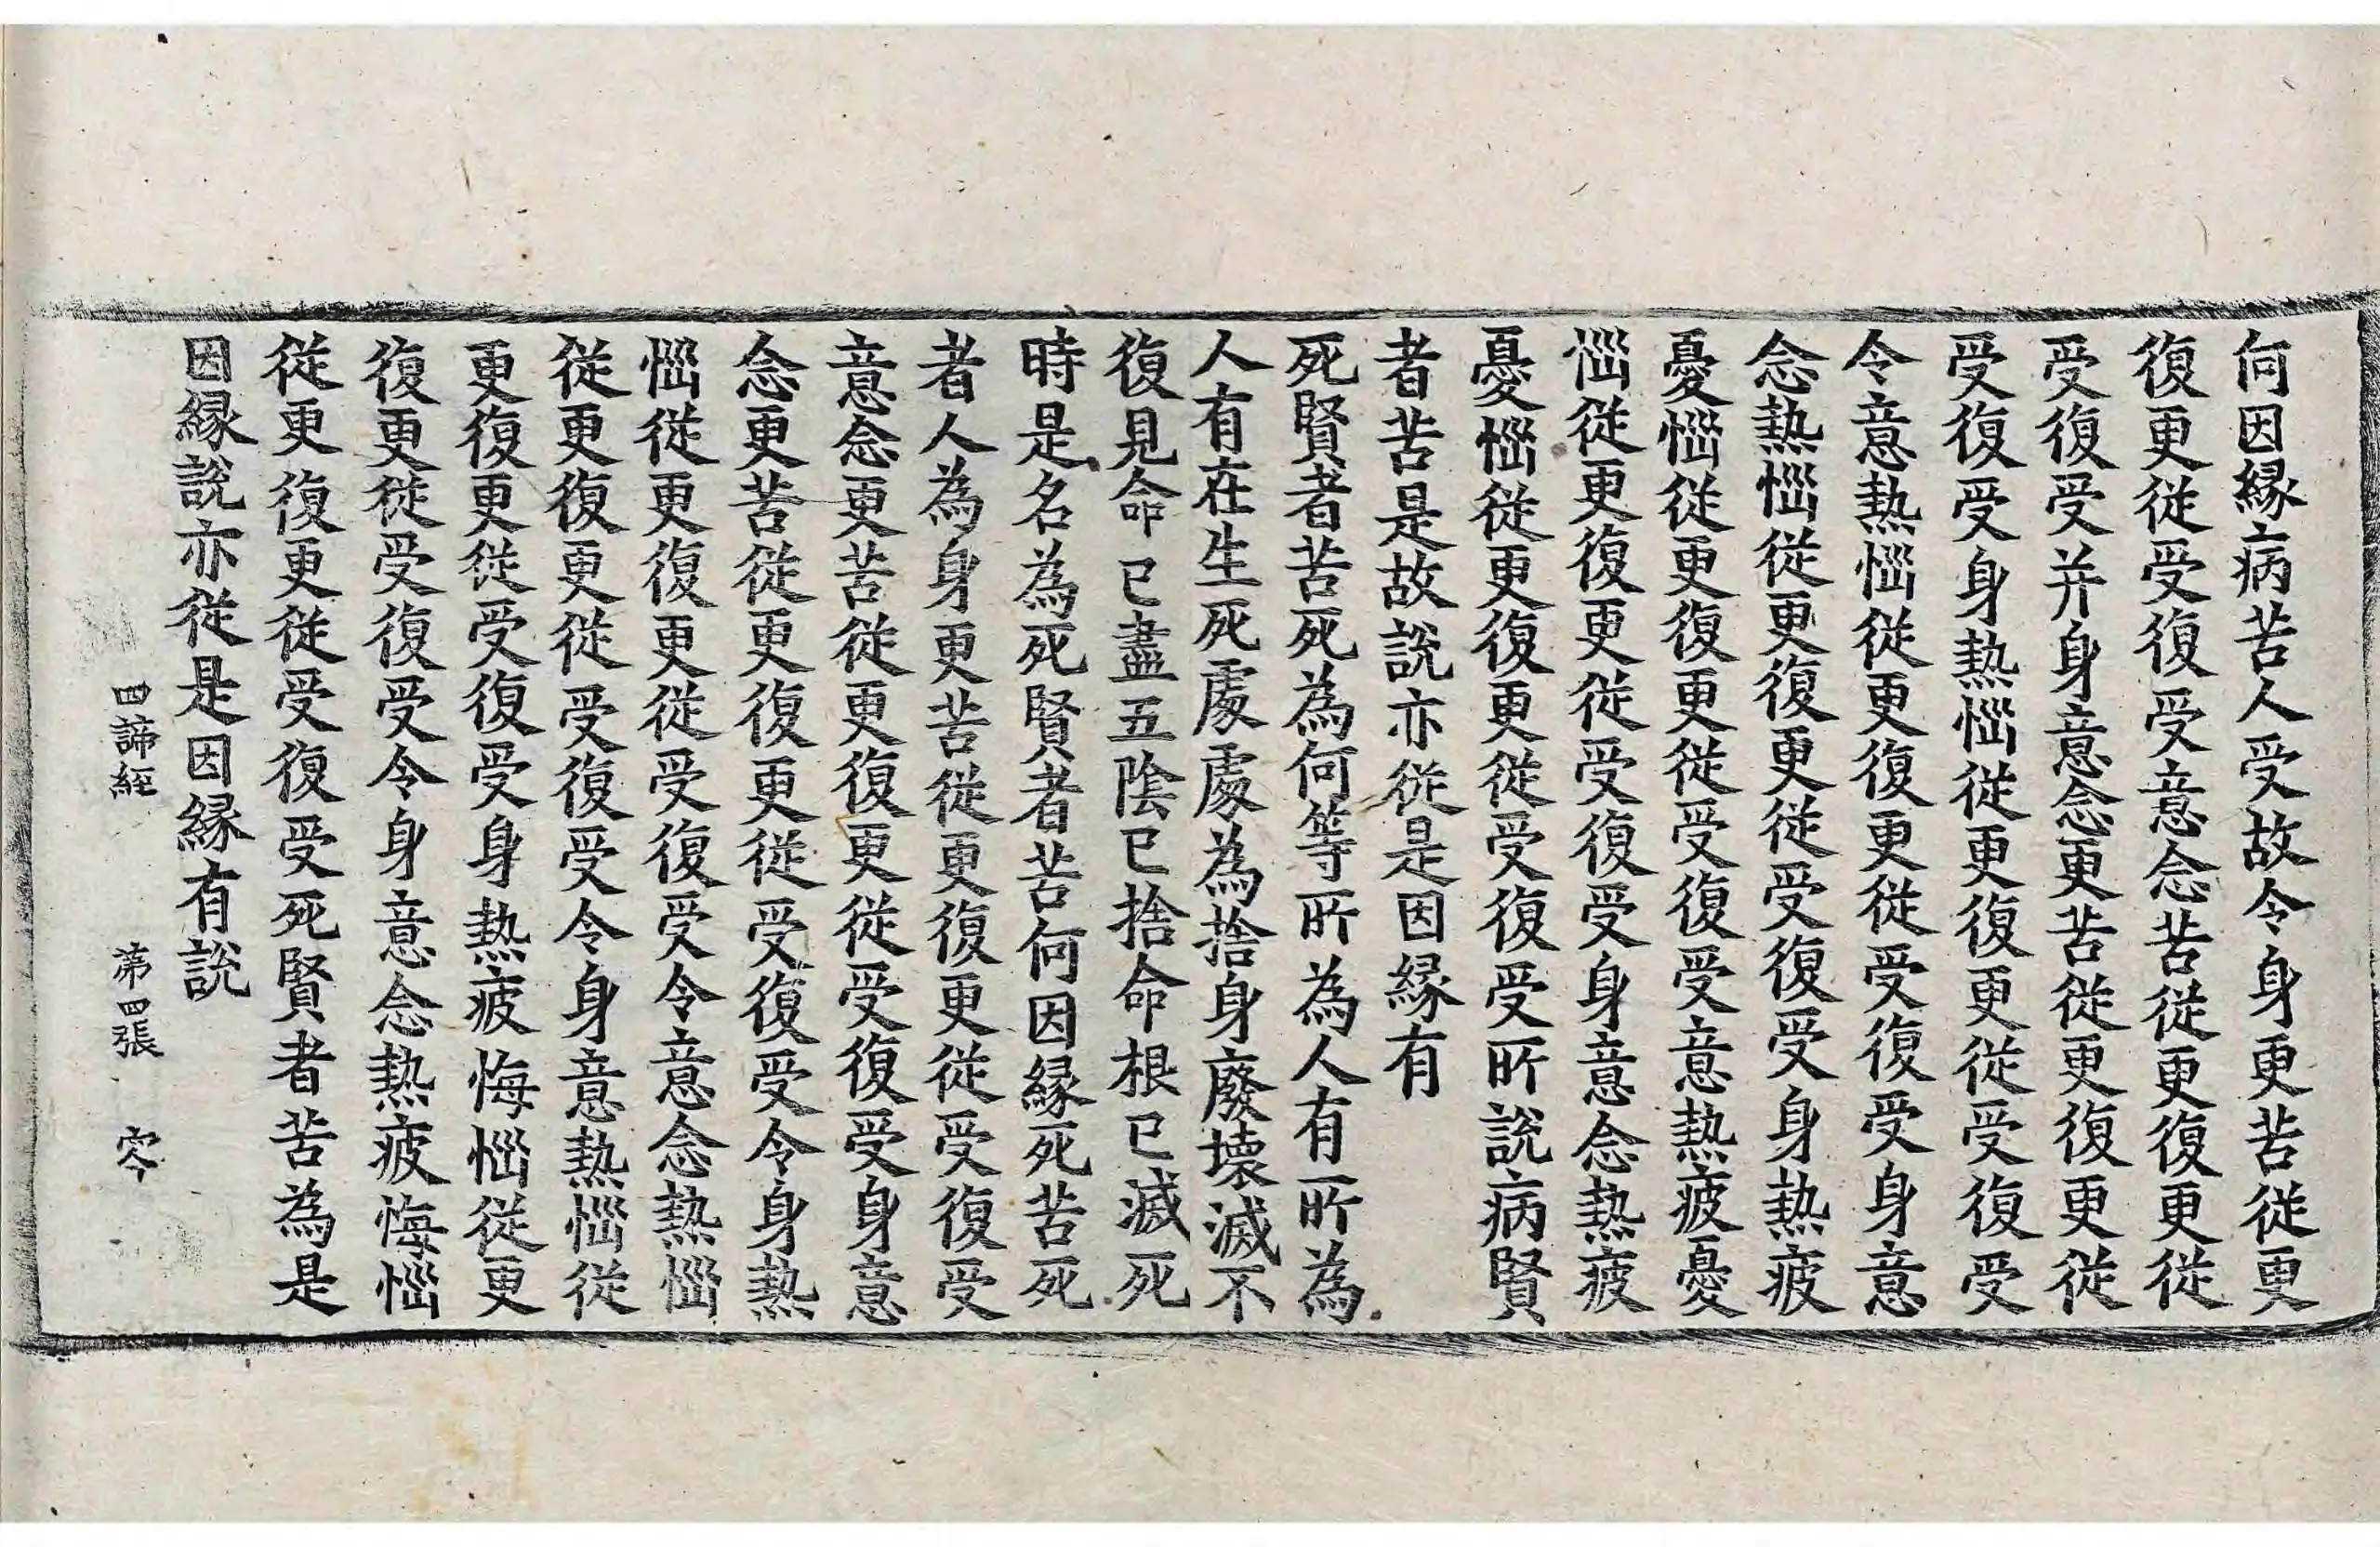 何因縁病苦人受故令身更苦從更
復更從受復受意念苦從更復更從
受復受并身意念更苦從更復更從
受復受身熱惱從更復更從受復受
令意熱惱從更復更從受復受身意
念熱惱從更復更從受復受身熱疲
憂惱從更復更從受復受意熱疲憂
惱從更復更從受復受身意念熱疲
憂惱從更復更從受復受所說病賢
者苦是故說亦從是因縁有
死賢者苦死為何等所為人有所為
人有在生死處處為捨身廢壞滅不
復見命已盡五陰已捨命根已滅死
時是名為死賢者苦何因縁死苦死
者人為身更苦從更復更從受復受
意念更苦從更復更從受復受身意
念更苦從更復更從受復受令身熱
惱從更復更從受復受令意念熱惱
從更復更從受復受令身意熱惱從
更復更從受復受身熱疲悔惱從更
復更從受復受令身意念熱疲悔惱
從更復更從受復受死賢者苦為是
因縁說亦從是因縁有說
四諦經 第四張